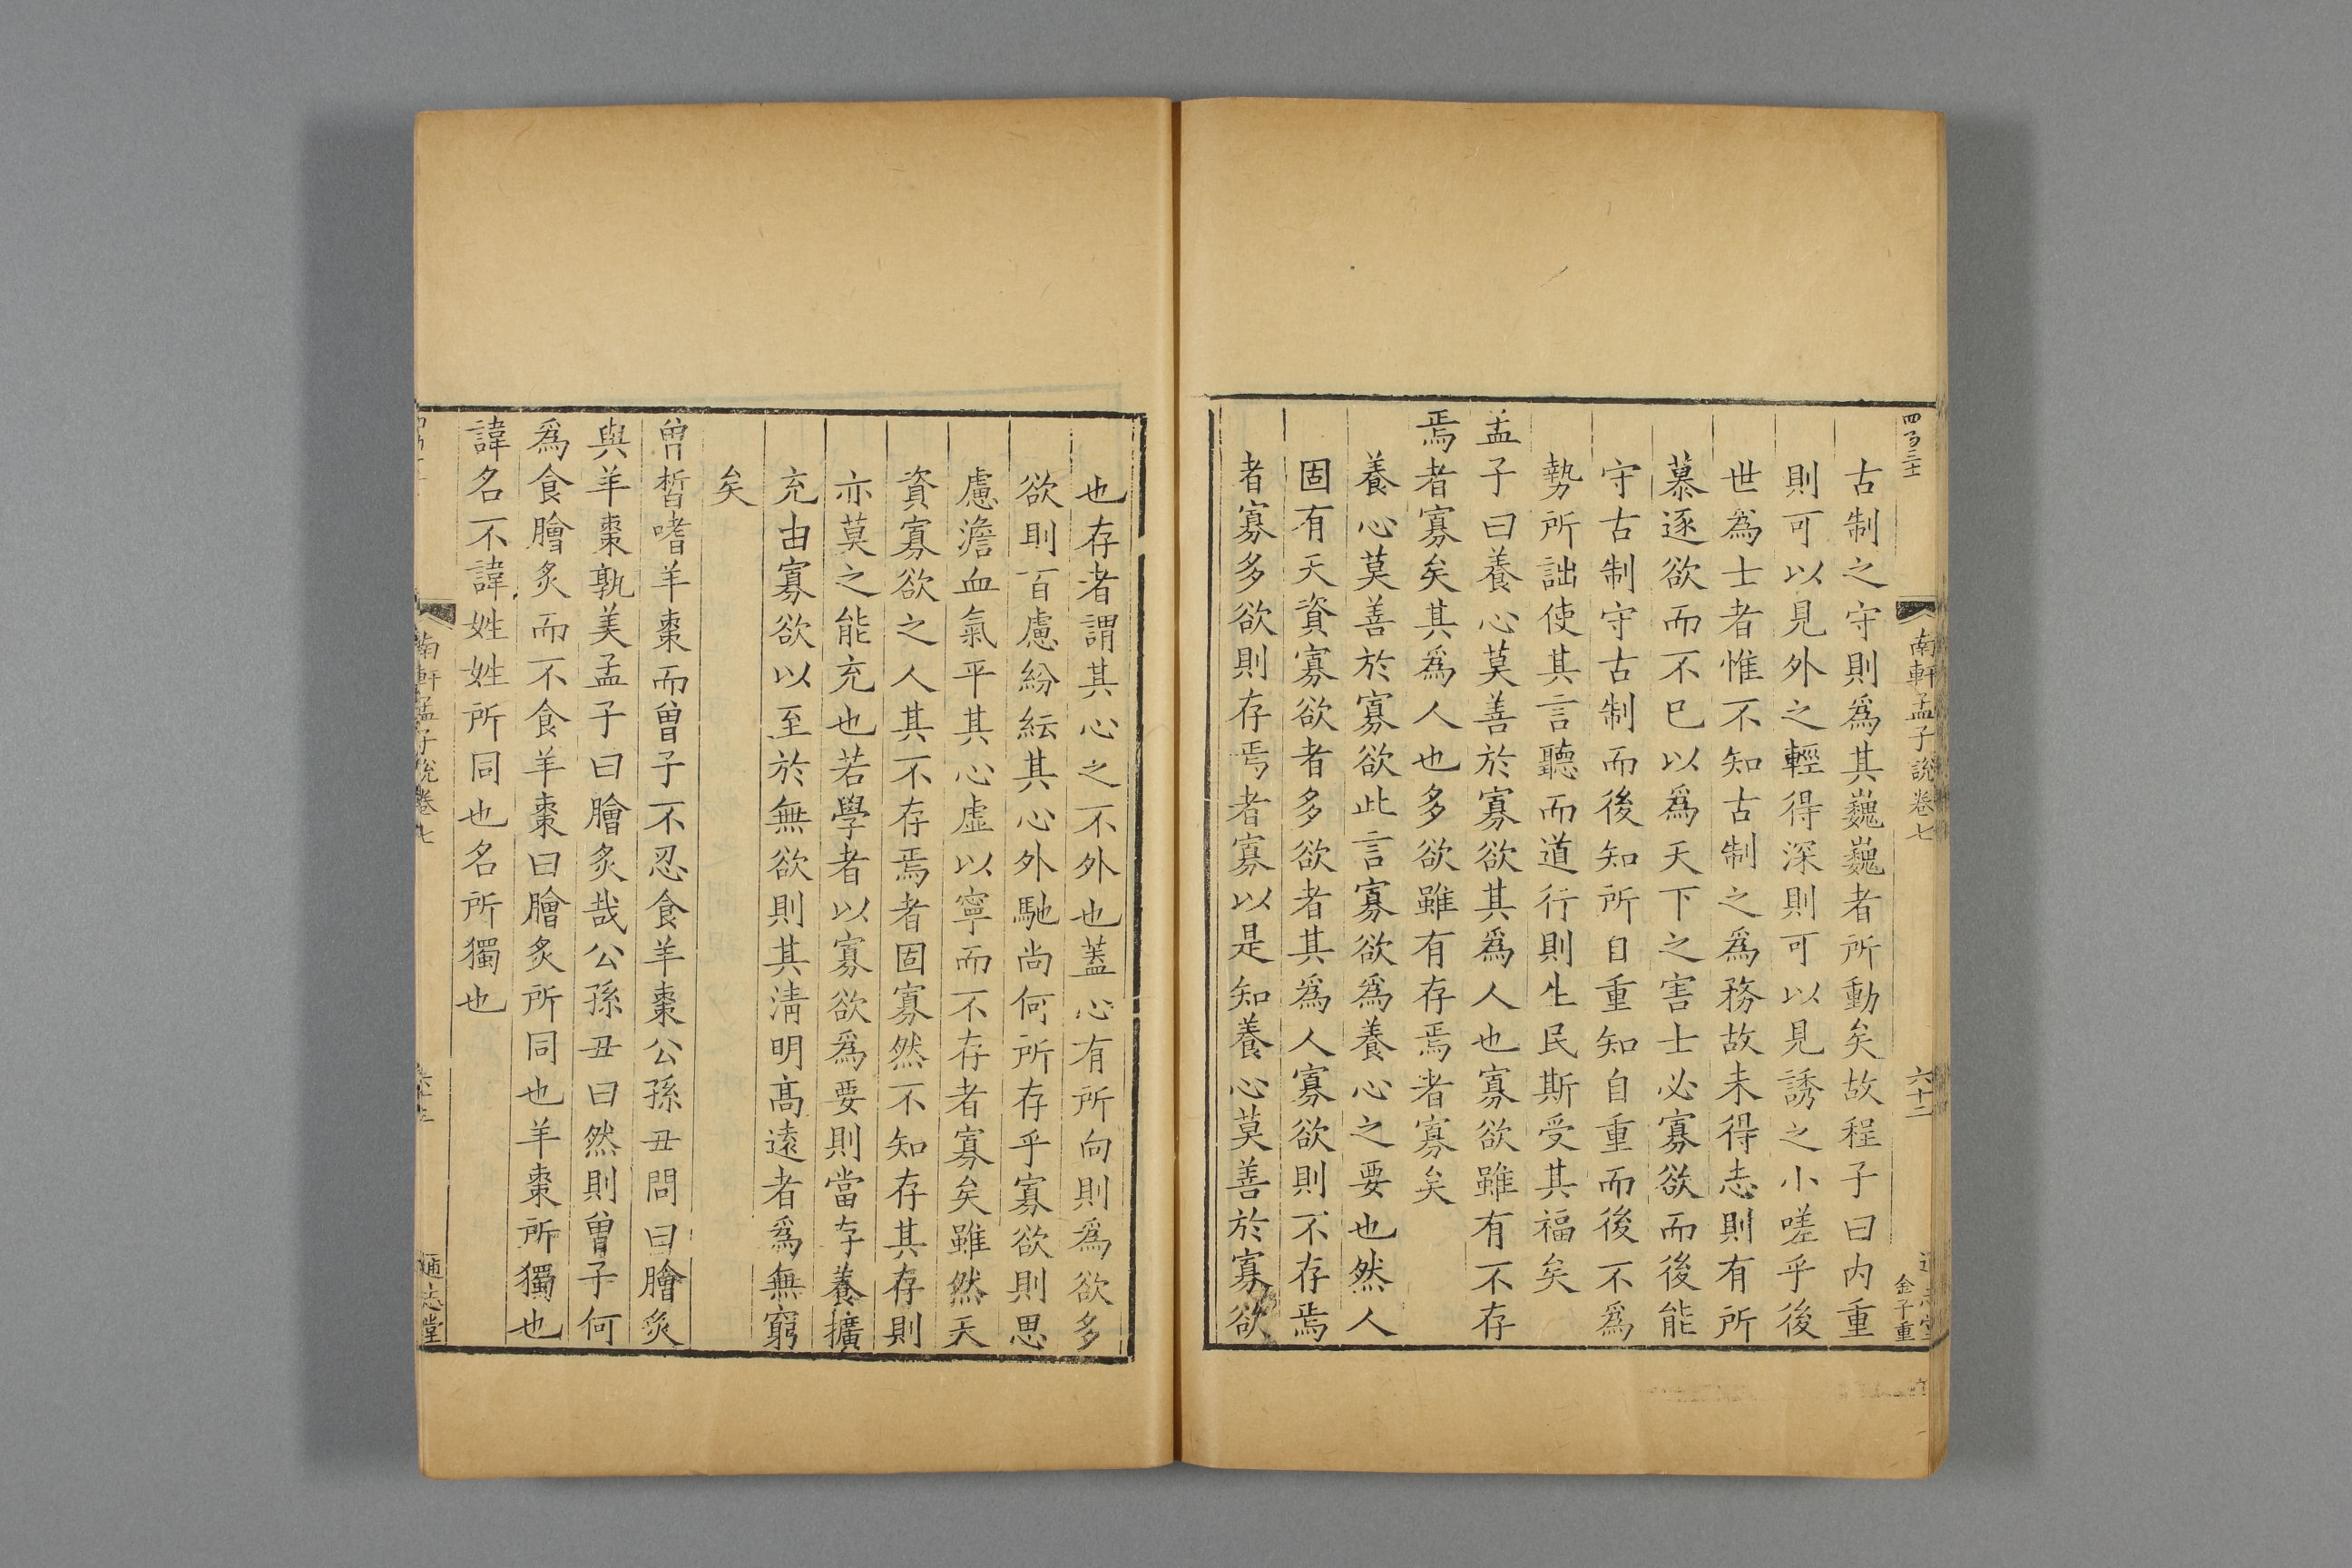 四百三十
南軒孟子說卷七
六十二
金子重
古制之守則爲其巍巍者所動矣故程子曰内重
則可以見外之輕得深則可以見誘之小嗟乎後
世爲士者惟不知古制之爲務故未得志則有所
慕逐欲而不已以爲天下之害士必寡欲而後能
守古制守古制而後知所自重知自重而後不爲
勢所詘使其言聽而道行則生民斯受其福矣
孟子曰養心莫善於寡欲其爲人也寡欲雖有不存
焉者寡矣其爲人也多欲雖有存焉者寡矣
養心莫善於寡欲此言寡欲爲養心之要也然人
固有天資寡欲者多欲者其爲人寡欲則不存焉
者寡多欲則存焉者寡以是知養心莫善於寡欲
也存者謂其心之不外也蓋心有所向則爲欲多
欲則百慮紛紜其心外馳尚何所存乎寡欲則思
慮澹血氣平其心虛以寧而不存者寡矣雖然天
資寡欲之人其不存焉者固寡然不知存其存則
亦莫之能充也若學者以寡欲爲要則當存養擴
充由寡欲以至於無欲則其清明髙遠者爲無窮
矣
曾晳嗜羊棗而曾子不忍食羊棗公孫丑問曰膾炙
與羊棗孰美孟子曰膾炙哉公孫丑曰然則曾子何
爲食膾炙而不食羊棗曰膾炙所同也羊棗所獨也
諱名不諱姓姓所同也名所獨也
南軒孟子說卷七
通志堂